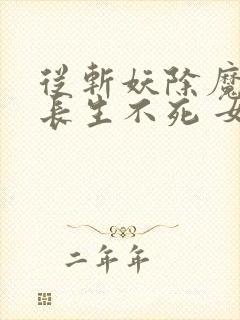 從斬妖除魔
長生不死 女
二年年